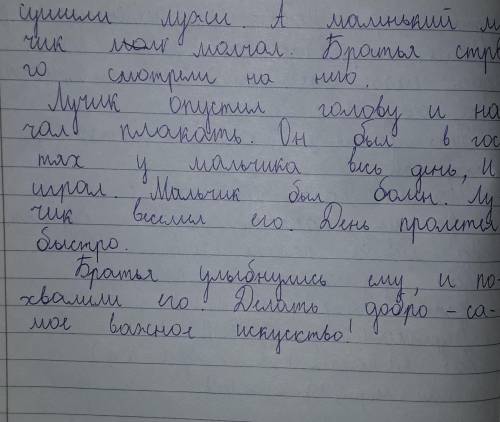 сушили лужи. А маленький л
чик молчал. Братья стро
го смотрели на него.
Лучик опустил голову и на
чал плакать. Он был в гос
тях у мальчика весь день, и
играл. Мальчик был болен. Лу
чик веселил его. День пролетел
быстро.
Братья улыбнулись ему, и по-
хвалили его. Делать добро - са-
мое важное искуство!